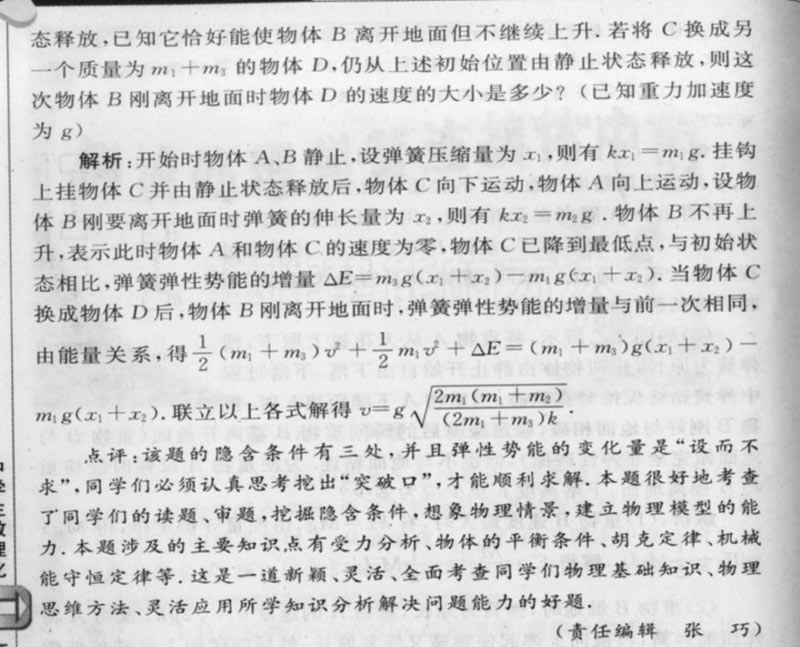 态释放,已知它恰好能使物体 B 离开地面但不继续上升.若将 C 换成另
一个质量为 m₁+m₃ 的物体 D,仍从上述初始位置由静止状态释放,则这
次物体 B 刚离开地面时物体 D 的速度的大小是多少?(已知重力加速度
为 g)
解析:开始时物体 A、B 静止,设弹簧压缩量为 x₁,则有 kx₁=m₁g.挂钩
上挂物体 C 并由静止状态释放后,物体 C 向下运动,物体 A 向上运动,设物
体 B 刚要离开地面时弹簧的伸长量为 x₂,则有 kx₂=m₂g.物体 B 不再上
升,表示此时物体 A 和物体 C 的速度为零,物体 C 已降到最低点,与初始状
态相比,弹簧弹性势能的增量 ΔE=m₃g(x₁+x₂)-m₁g(x₁+x₂).当物体 C
换成物体 D 后,物体 B 刚离开地面时,弹簧弹性势能的增量与前一次相同,
由能量关系,得 1/2 (m₁+m₃)v²+1/2 m₁v²+ΔE=(m₁+m₃)g(x₁+x₂)-
m₁g(x₁+x₂).联立以上各式解得 v=g√(2m₁(m₁+m₂)/(2m₁+m₃)k).
点评:该题的隐含条件有三处,并且弹性势能的变化量是“设而不
求”,同学们必须认真思考挖出“突破口”,才能顺利求解.本题很好地考查
了同学们的读题、审题,挖掘隐含条件,想象物理情景,建立物理模型的能
力.本题涉及的主要知识点有受力分析、物体的平衡条件、胡克定律、机械
能守恒定律等.这是一道新颖、灵活、全面考查同学们物理基础知识、物理
思维方法、灵活应用所学知识分析解决问题能力的好题.
(责任编辑 张 巧)